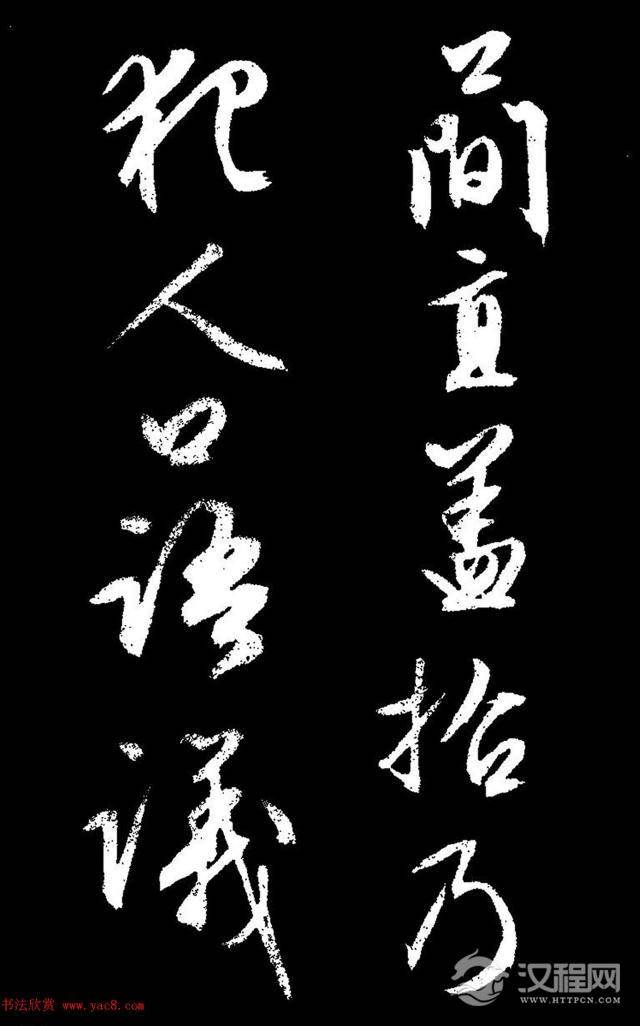 簡直盖拾乃
犯人口語議
书法欣赏 www.yac8.com
汉程网
WWW.HTTPCN.COM